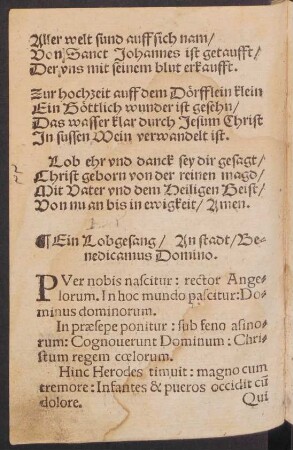 Aller welt sünd auff sich nam/
Von Sanct Johannes ist getaufft/
Der vns mit seinem blut erkaufft.
Zur hochzeit auff dem Dörfflein klein
Ein Göttlich wunder ist gesehn/
Das wasser klar durch Jesum Christ
In süssen Wein verwandelt ist.
Lob ehr vnd danck sey dir gesagt/
Christ geborn von der reinen magd/
Mit Vater vnd dem Heiligen Geist/
Von nu an bis in ewigkeit/ Amen.
¶ Ein Lobgesang/ An stadt/ Be-
nedicamus Domino.
PVer nobis nascitur: rector Ange-
lorum. In hoc mundo pascitur: Do-
minus dominorum.
In præsepe ponitur: sub feno asino-
rum: Cognouerunt Dominum: Chri-
stum regem cœlorum.
Hinc Herodes timuit: magno cum
tremore: Infantes & pueros occidit cũ
dolore. Qui